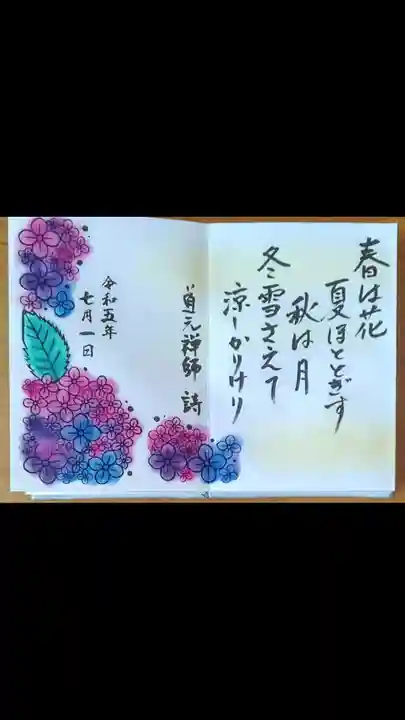 春は花
夏ほとゝぎす
秋は月
冬雪さえて
涼しかりけり
道元禅師 詩
令和五年
七月一日